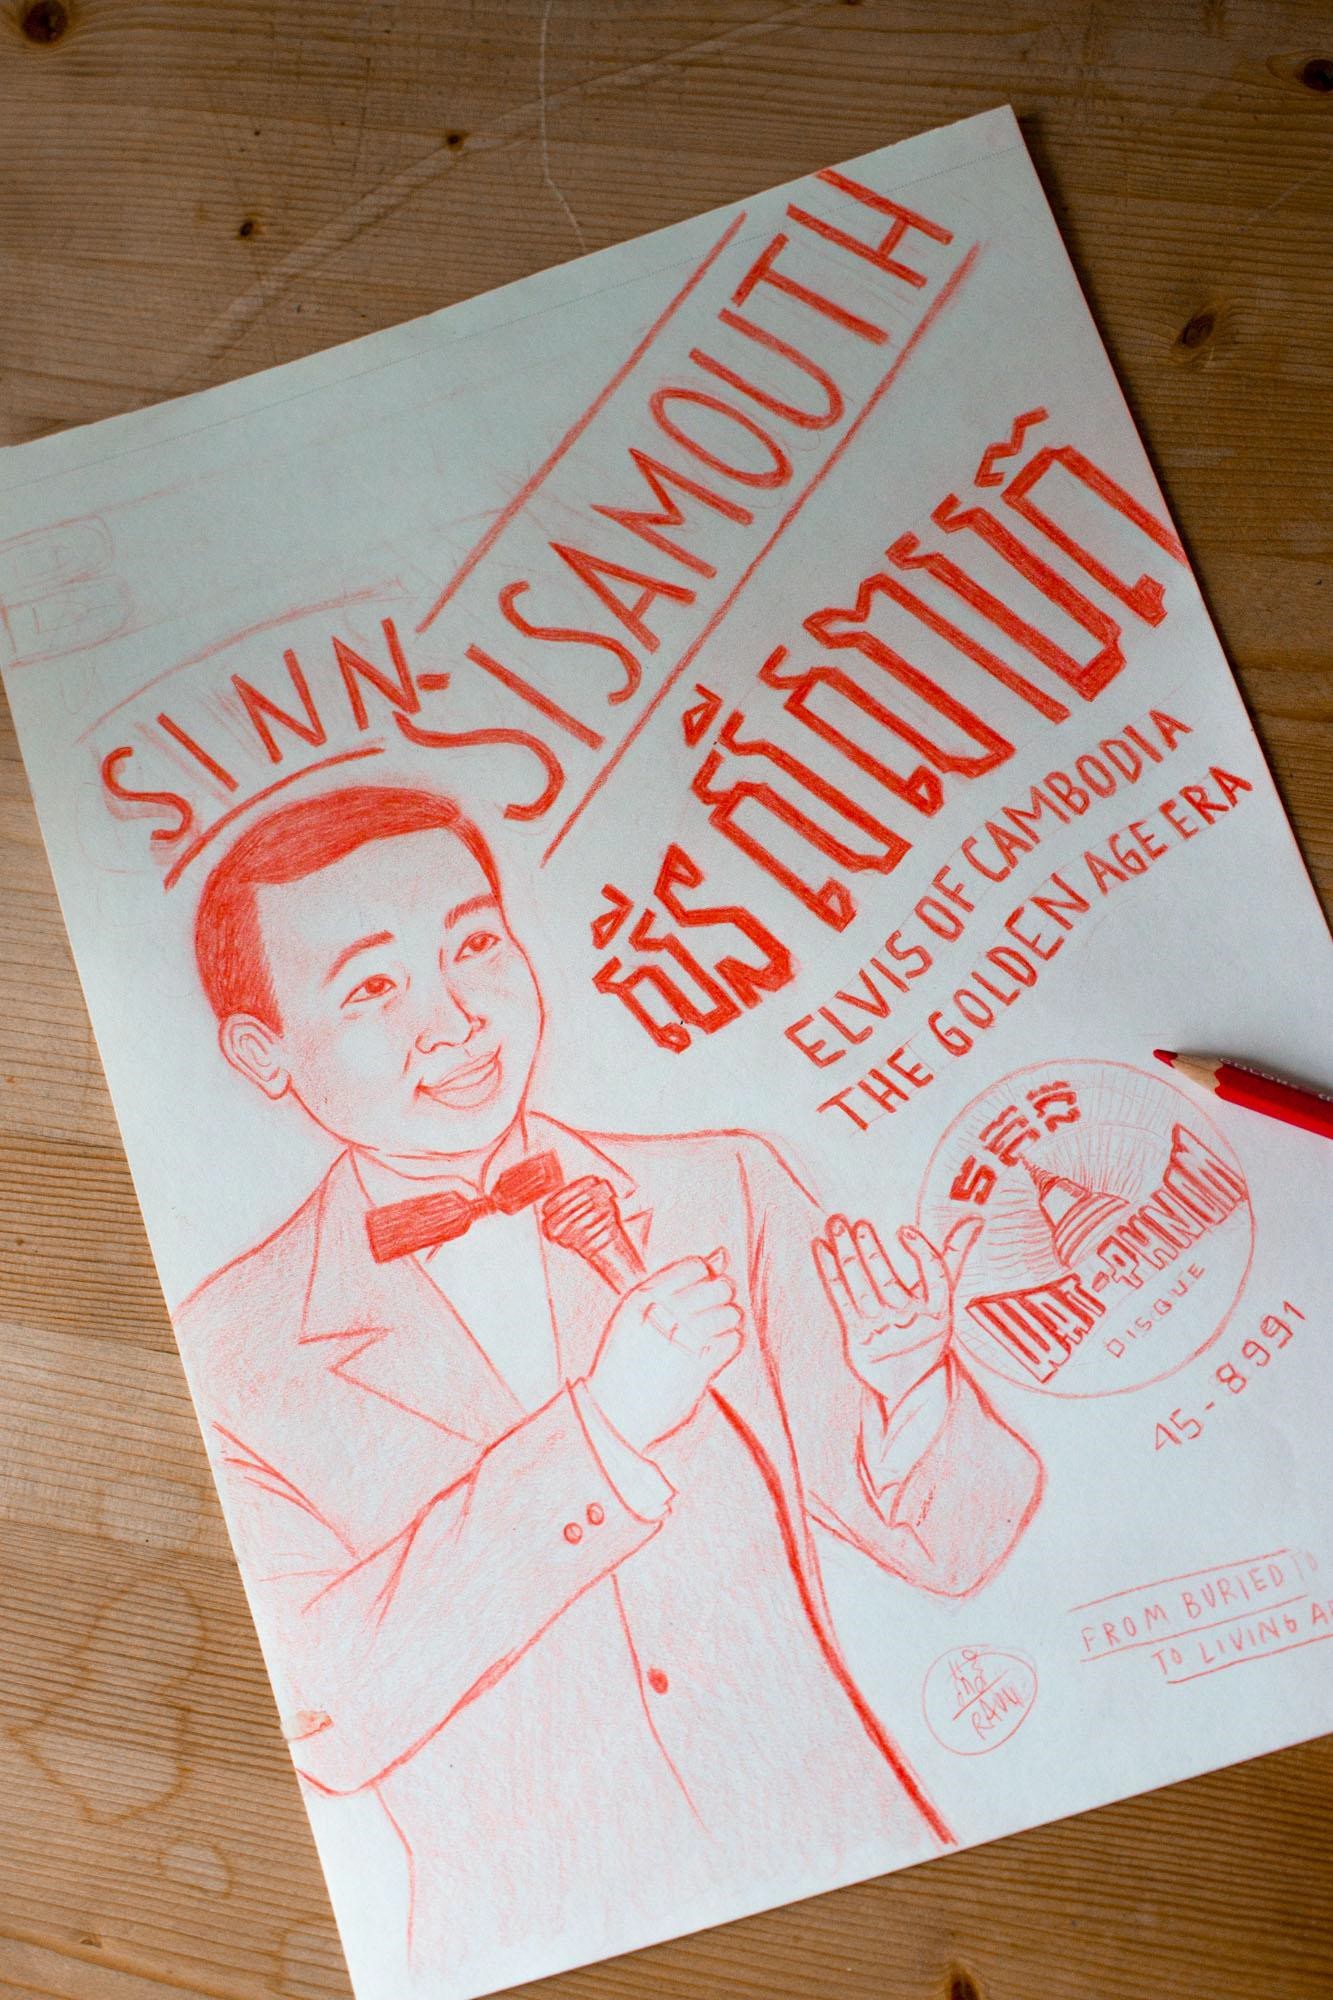 SINN SISAMOUTH
ស៊ីន ស៊ីសាមុត
ELVIS OF CAMBODIA
THE GOLDEN AGE ERA
វត្តភ្នំ
WAT-PHNOM
DISQUE
45-8991
FROM BURIED TO
TO LIVING